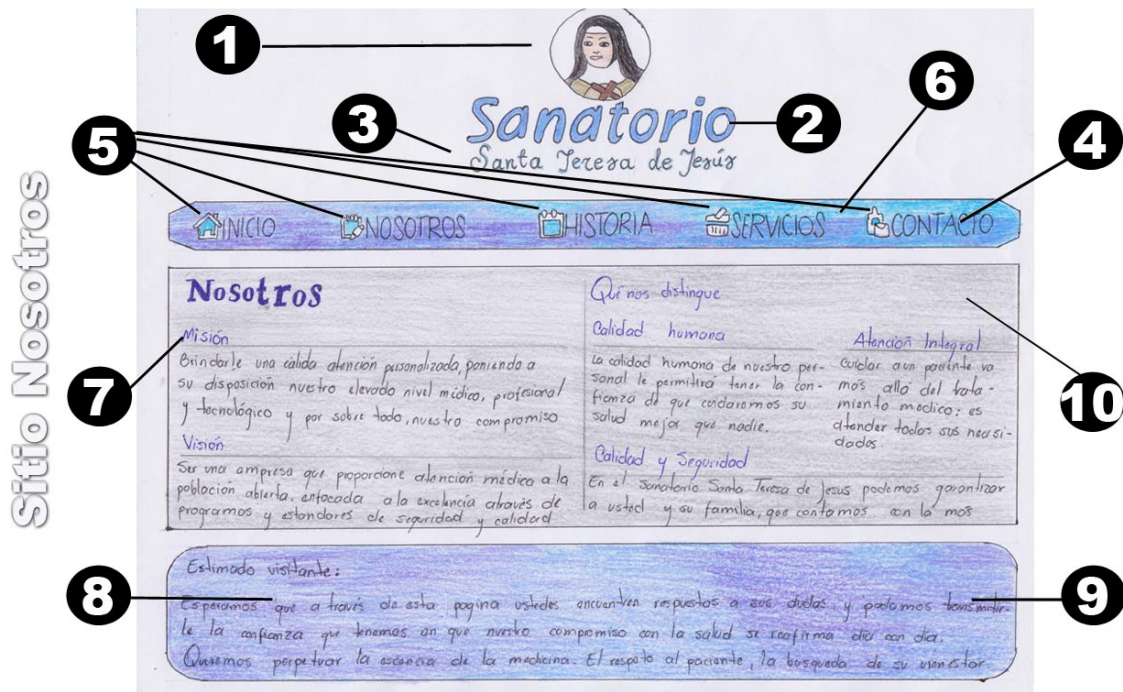 Sitio Nosotros
1
Sanatorio
2
3
Santa Teresa de Jesús
6
4
5
INICIO
NOSOTROS
HISTORIA
SERVICIOS
CONTACTO
Nosotros
7
Misión
Brindarle una cálida atención personalizada, poniendo a
su disposición nuetro elevado nivel médico, profesional
y tecnológico y por sobre todo, nuestro compromiso
Visión
Ser una empresa que proporcione atención médica a la
población abierta, enfocada a la excelencia através de
programas y estandares de seguridad y calidad
Qué nos distingue
Calidad humana
La calidad humana de nuestro per-
sonal le permitirá tener la con-
fianza de que cuidaremos su
salud mejor que nadie.
Atención Integral
Cuidar a un paciente va
más allá del trata-
miento medico; es
atender todas sus necesi-
dades.
10
Calidad y Seguridad
En el Sanatorio Santa Teresa de Jesus podemos garantizar
a usted y su familia, que contamos con la mas
8
9
Estimado visitante:
Esperamos que a través de esta pagina ustedes encuentren respuestas a sus dudas, y podamos transmitir-
le la confianza que tenemos en que nuestro compromiso con la salud se reafirma día con día.
Queremos perpetuar la escencia de la medicina. El respeto al paciente, la busqueda de su